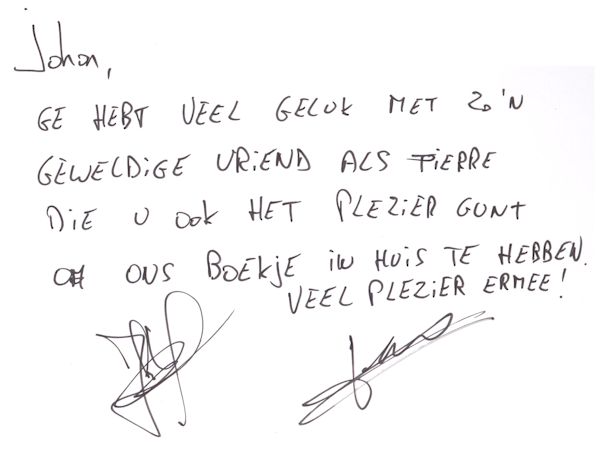 Johan,
GE HEBT VEEL GELUK MET ZO'N
GEWELDIGE VRIEND ALS PIERRE
DIE U OOK HET PLEZIER GUNT
OM ONS BOEKJE IN HUIS TE HEBBEN.
VEEL PLEZIER ERMEE!